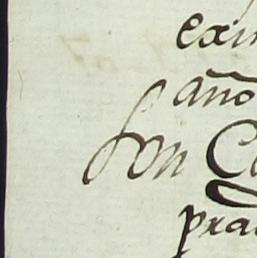 exi
año
Son C
pra